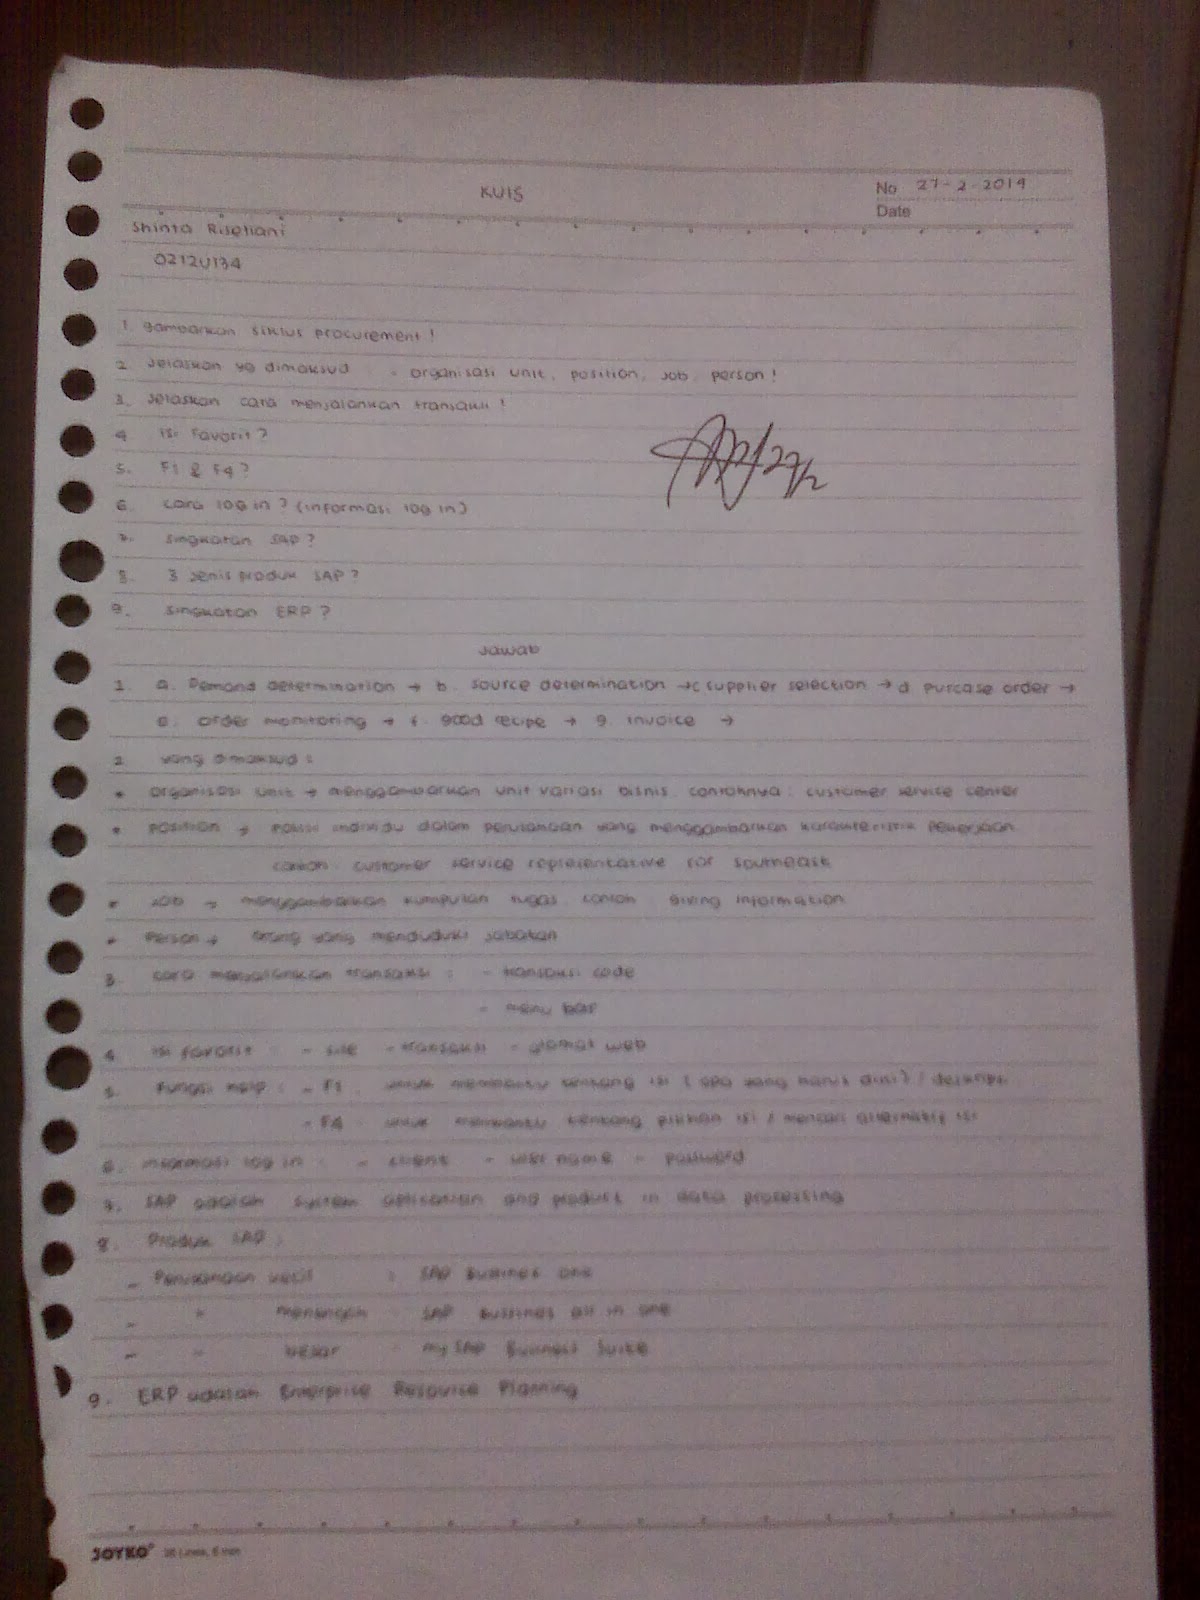 KUIS
No 27-2-2014
Date
Shinta Risetiani
0212U134
1. gambarkan siklus procurement!
2. Jelaskan yg dimaksud : - organisasi unit, position, job, person!
3. Jelaskan cara menjalankan transaksi!
4. isi favorit?
5. F1 & F4?
6. cara log in? (informasi log in)
7. Singkatan SAP?
8. 3 Jenis produk SAP?
9. Singkatan ERP?
Jawab
1. a. Demand determination → b. source determination → c supplier selection → d purcase order →
e. order monitoring → f. good recipe → g. invoice →
2. yang dimaksud :
* organisasi unit → menggambarkan unit variasi bisnis. contohnya : customer service center
* position → posisi individu dalam perusahaan yang menggambarkan karakteristik pekerjaan
contoh : customer service representative for southeast
* Job → menggambarkan kumpulan tugas. contoh : giving information
* Person → orang yang menduduki jabatan
3. cara menjalankan transaksi : - transaksi code
- menu bar
4. isi favorit : - file - transaksi - alamat web
5. Fungsi help : - F1 : untuk membantu tentang isi (apa yang harus diisi) /
- F4 : untuk membantu tentang pilihan isi / mencari alternatif isi
6. informasi log in : - client - user name - password
7. SAP adalah system aplication and product in data processing
8. Produk SAP :
- Perusahaan kecil : SAP Bussines one
- " menengah : SAP Bussines all in one
- " besar : my SAP Business Suite
9. ERP adalah Enterprise Resource Planning
JOYKO